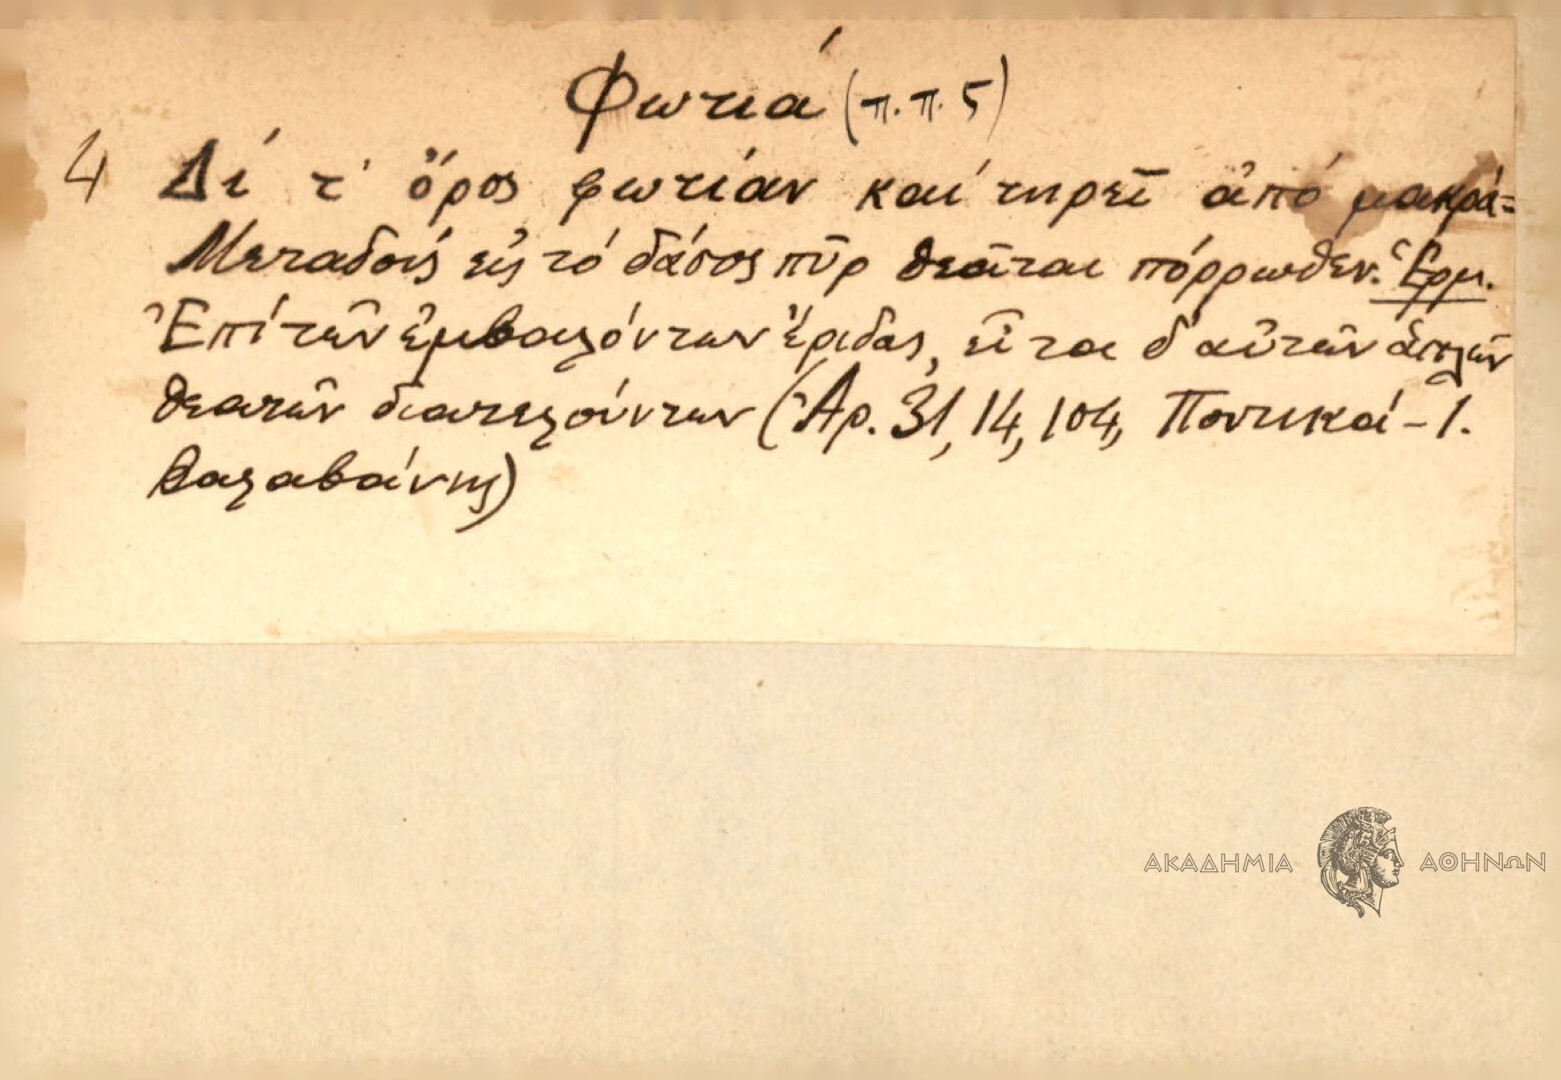 Φωτιά (π.π. 5)
4 Δί τ' ὄρος φωτίαν καί τηρεῖ ἀπό μακρά=
Μεταδούς εἰς τό δάσος πῦρ θεᾶται πόρρωθεν. Ἑρμ.
Ἐπί τῶν ἐμβαλόντων ἔριδας, εἶτα δ' αὐτῶν ἁπλῶν
θεατῶν διατελούντων (Ἀρ. 31, 14, 104, Ποντικά - Ι.
Βαλαβάνης)
ΑΚΑΔΗΜΙΑ ΑΘΗΝΩΝ